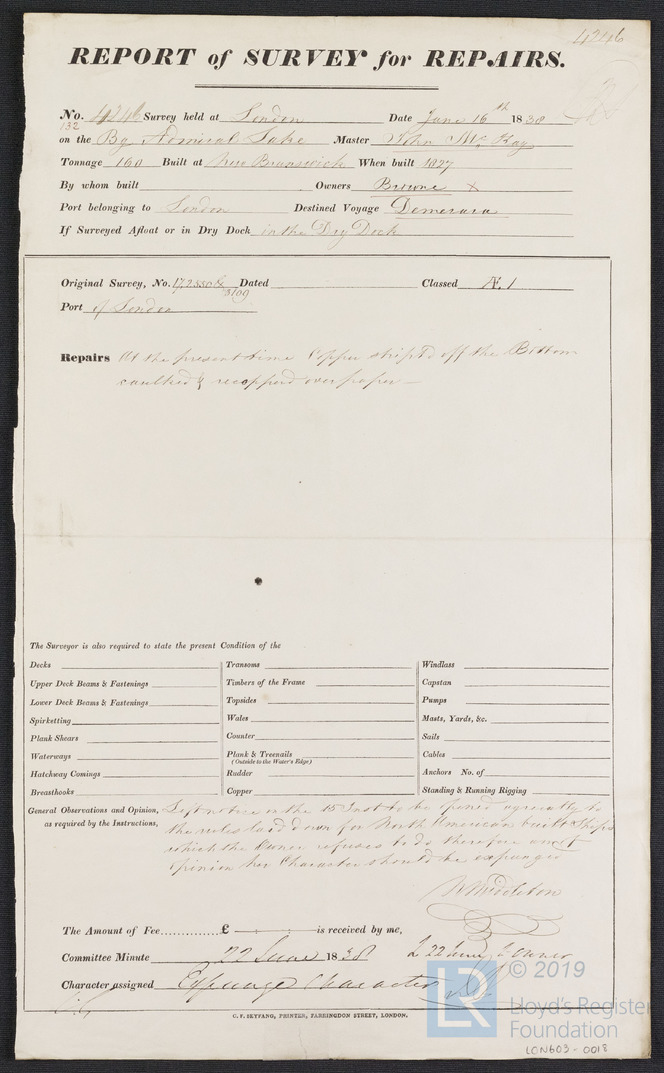 4246
REPORT of SURVEY for REPAIRS.
No. 4246 Survey held at London Date June 16th 1838
132
on the Bg Admiral Lake Master John McKay
Tonnage 160 Built at New Brunswick When built 1827
By whom built Owners Browne X
Port belonging to London Destined Voyage Demerara
If Surveyed Afloat or in Dry Dock in the Dry Dock
Original Survey, No. Dated Classed Æ.1
Port of London
Repairs At the present time Copper stript off the Bottom
caulked & recopperd over paper —
The Surveyor is also required to state the present Condition of the
Decks Transoms Windlass
Upper Deck Beams & Fastenings Timbers of the Frame Capstan
Lower Deck Beams & Fastenings Topsides Pumps
Spirketting Wales Masts, Yards, &c.
Plank Shears Counter Sails
Waterways Plank & Treenails Cables
(Outside to the Water's Edge)
Hatchway Comings Rudder Anchors No. of
Breasthooks Copper Standing & Running Rigging
General Observations and Opinion, Left notice on the 15 Inst to be opened agreeably to
as required by the Instructions, the rules laid down for North American built Ships
which the Owner refuses to do therefore am of
opinion her Character should be expunged
W Middleton
The Amount of Fee............£ is received by me,
Committee Minute 22 June 1838 22 June Owner
Character assigned Expunge Character
C. F. SEYFANG, PRINTER, FARRINGDON STREET, LONDON.
© 2019
LR
Lloyd's Register
Foundation
LON603-0018